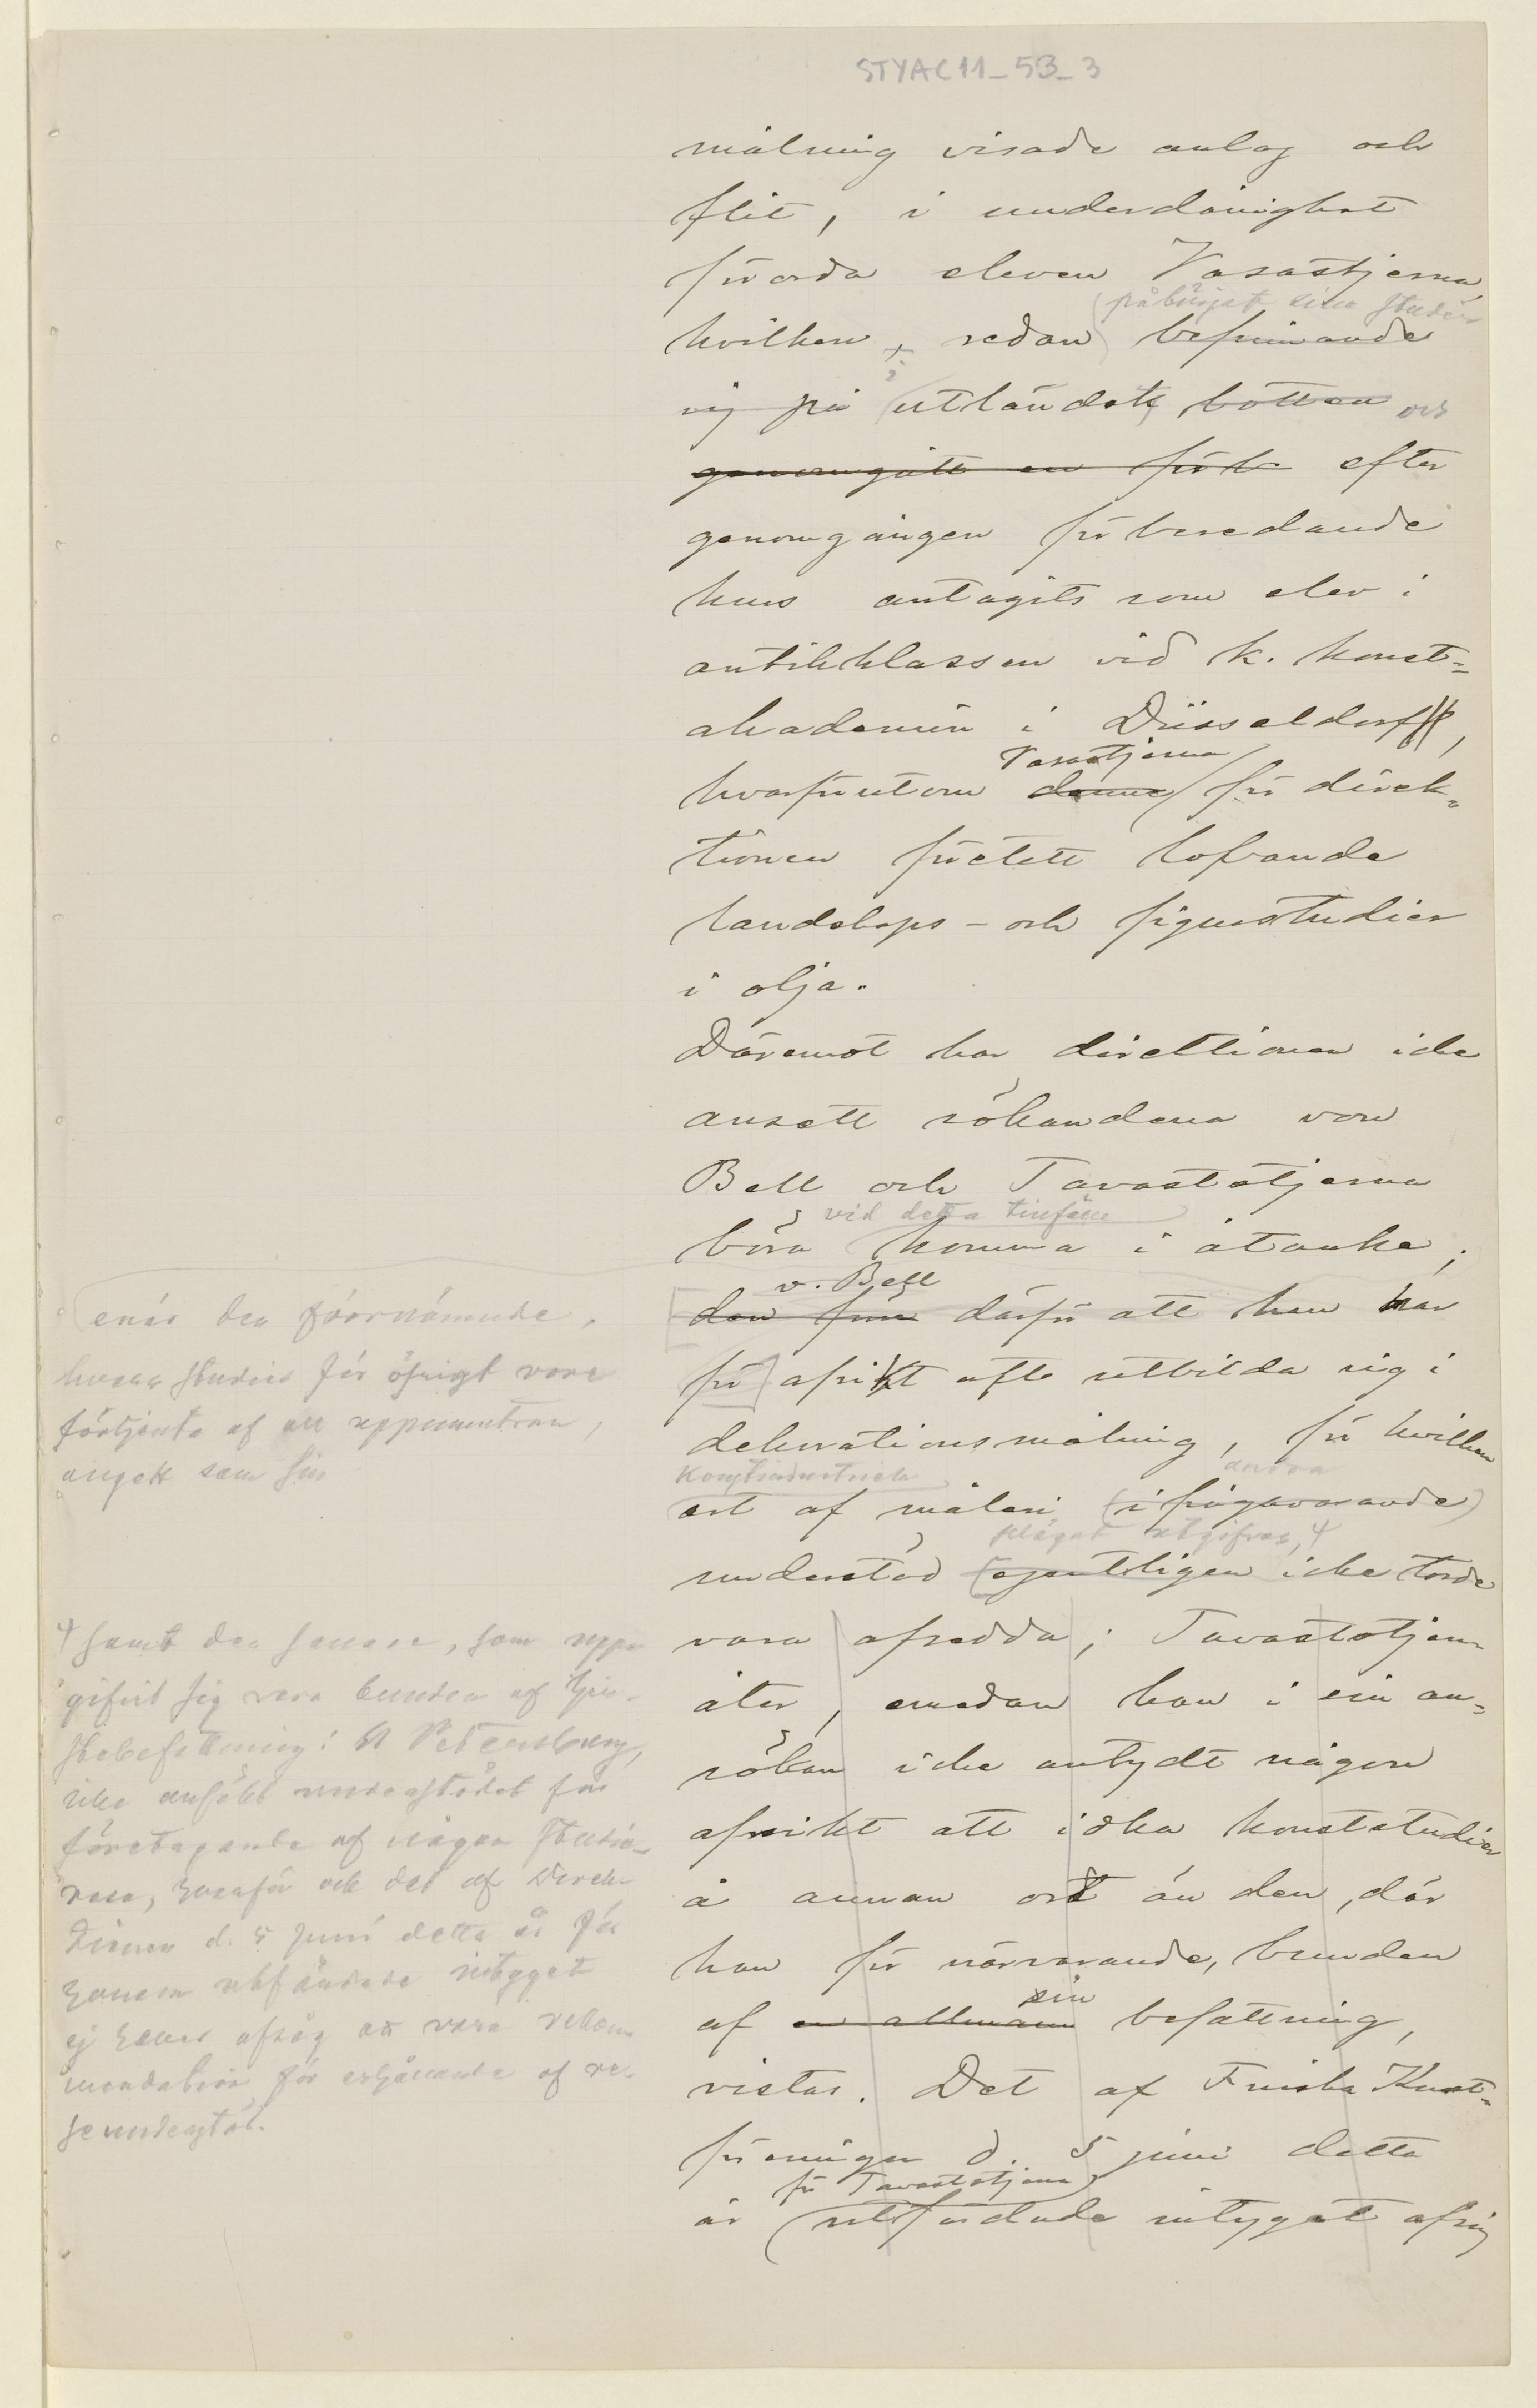 STYAC11_53_3
målning visade anlag och
flit, i underdånighet
förorda eleven Vasastjerna,
påbörjat sina studier
hvilken, redan befinnande
sig på utländsk botten och
genomgått en förb efter
genomgången förberedande
kurs antagits som elev i
antikklassen vid k. konst-
akademin i Düsseldorff,
Vasastjerna
hvarförutom denne för direk-
tionen företett lofvande
landskaps- och figurstudier
i olja.
Däremot har direktionen icke
ansett sökandena von
Bell och Tavaststjerna
vid detta tillfälle
böra komma i åtanke;
v. Bell
den förre därför att han har
för afsikt att utbilda sig i
dekorationsmålning, för hvilken
konstindustriela andra
art af måleri ifrågavarande
plägat utgifvas,
understöd egentligen icke torde
vara afsedda; Tavaststjerna
åter, emedan han i sin an-
sökan icke antydt någon
afsikt att idka konststudier
å annan ort än den, där
han för närvarande, bunden
sin
af en allmän befattning,
vistas. Det af Finska Konst-
föreningen d. 5 juni detta
för Tavaststjerna
år utfärdade intyget afsåg
enär den förrnämnde,
hvars studier för öfrigt vore
förtjenta af all uppmuntran,
angett som sin
samt den senare, som upp-
gifvit sig vara bunden af tjen-
stebefattning i St Petersburg,
icke ansökt understödet för
företagande af någon studie-
resa, hvarför och det af Direk-
tionen d. 5 juni detta år för
honom utfärdade intyget
ej heller afsåg att vara rekom-
mendation för erhållande af re-
seunderstöd.